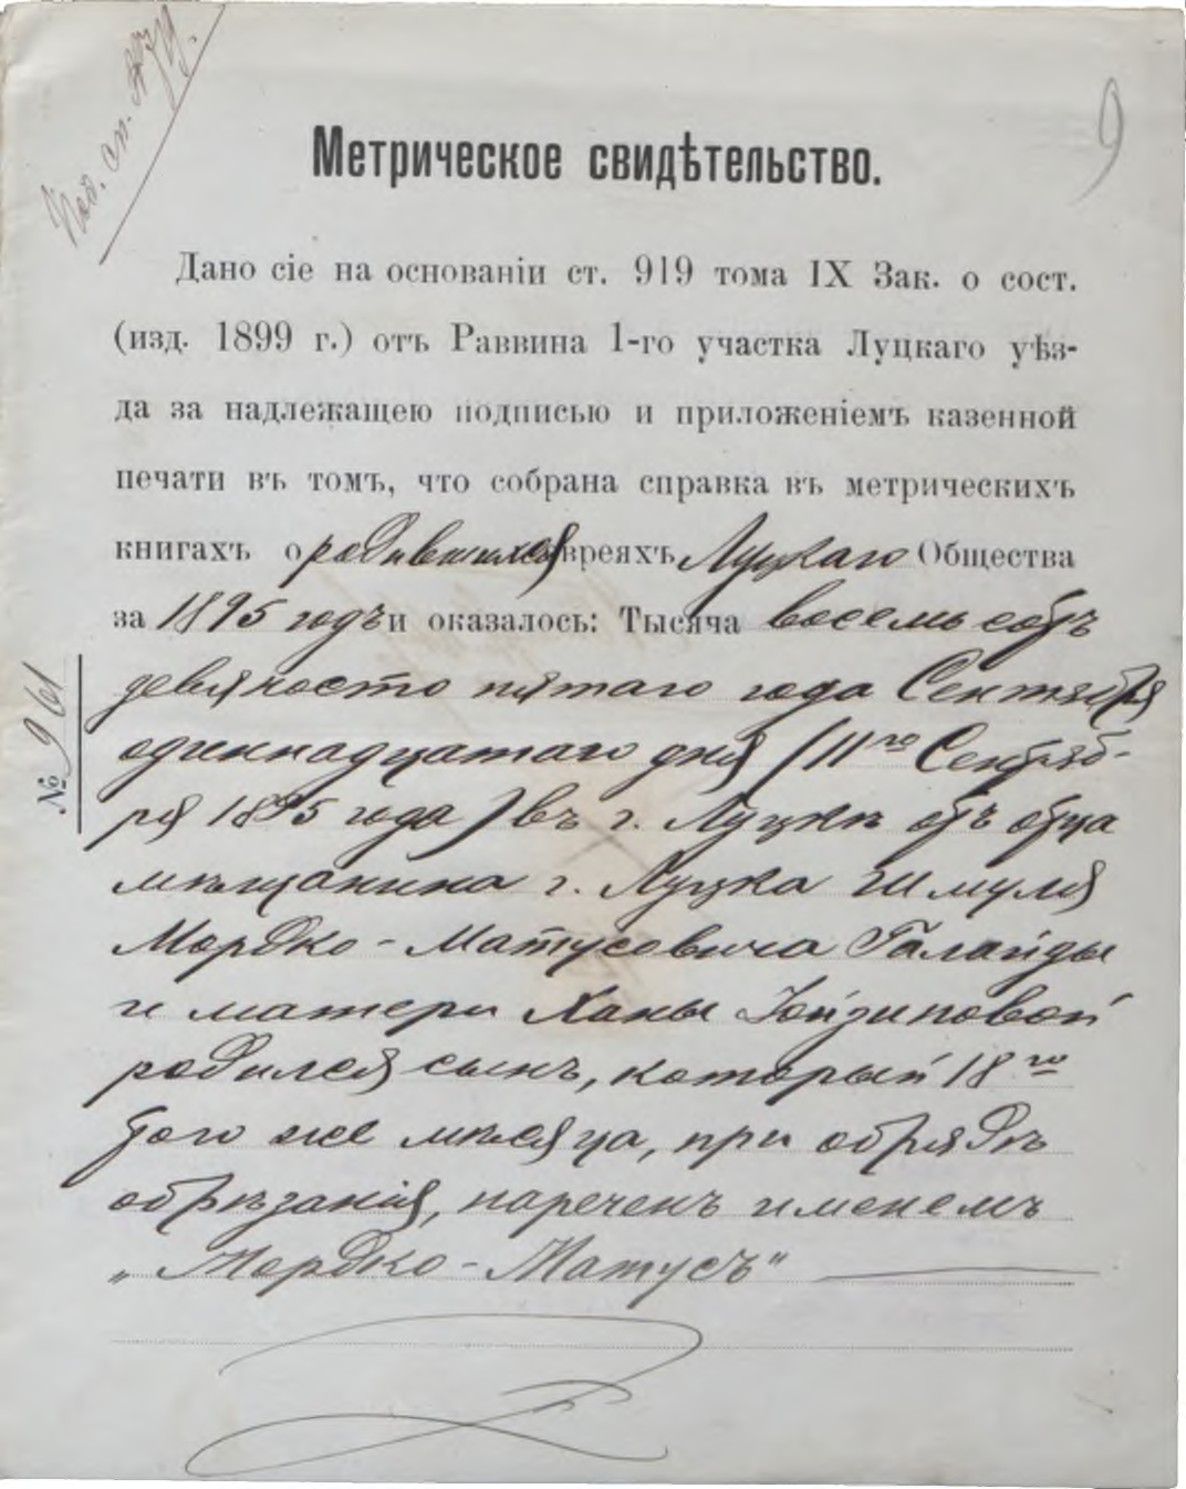 9
Метрическое свидѣтельство.
Дано сіе на основаніи ст. 919 тома IX Зак. о сост.
(изд. 1899 г.) отъ Раввина 1-го участка Луцкаго уѣз-
да за надлежащею подписью и приложеніемъ казенной
печати въ томъ, что собрана справка въ метрическихъ
книгахъ о родившихся евреяхъ Луцкаго Общества
за 1895 годъ и оказалось: Тысяча восемьсотъ
девяносто пятаго года Сентября
одиннадцатаго дня (11го Сентяб-
ря 1895 года) въ г. Луцкѣ отъ отца
мѣщанина г. Луцка Шмуля
Мордко-Матусовича Галайды
и матери Ханы
родился сынъ, который 18го
того же мѣсяца, при обрядѣ
обрѣзанія, нареченъ именемъ
„Мордко-Матусъ"
№ 961